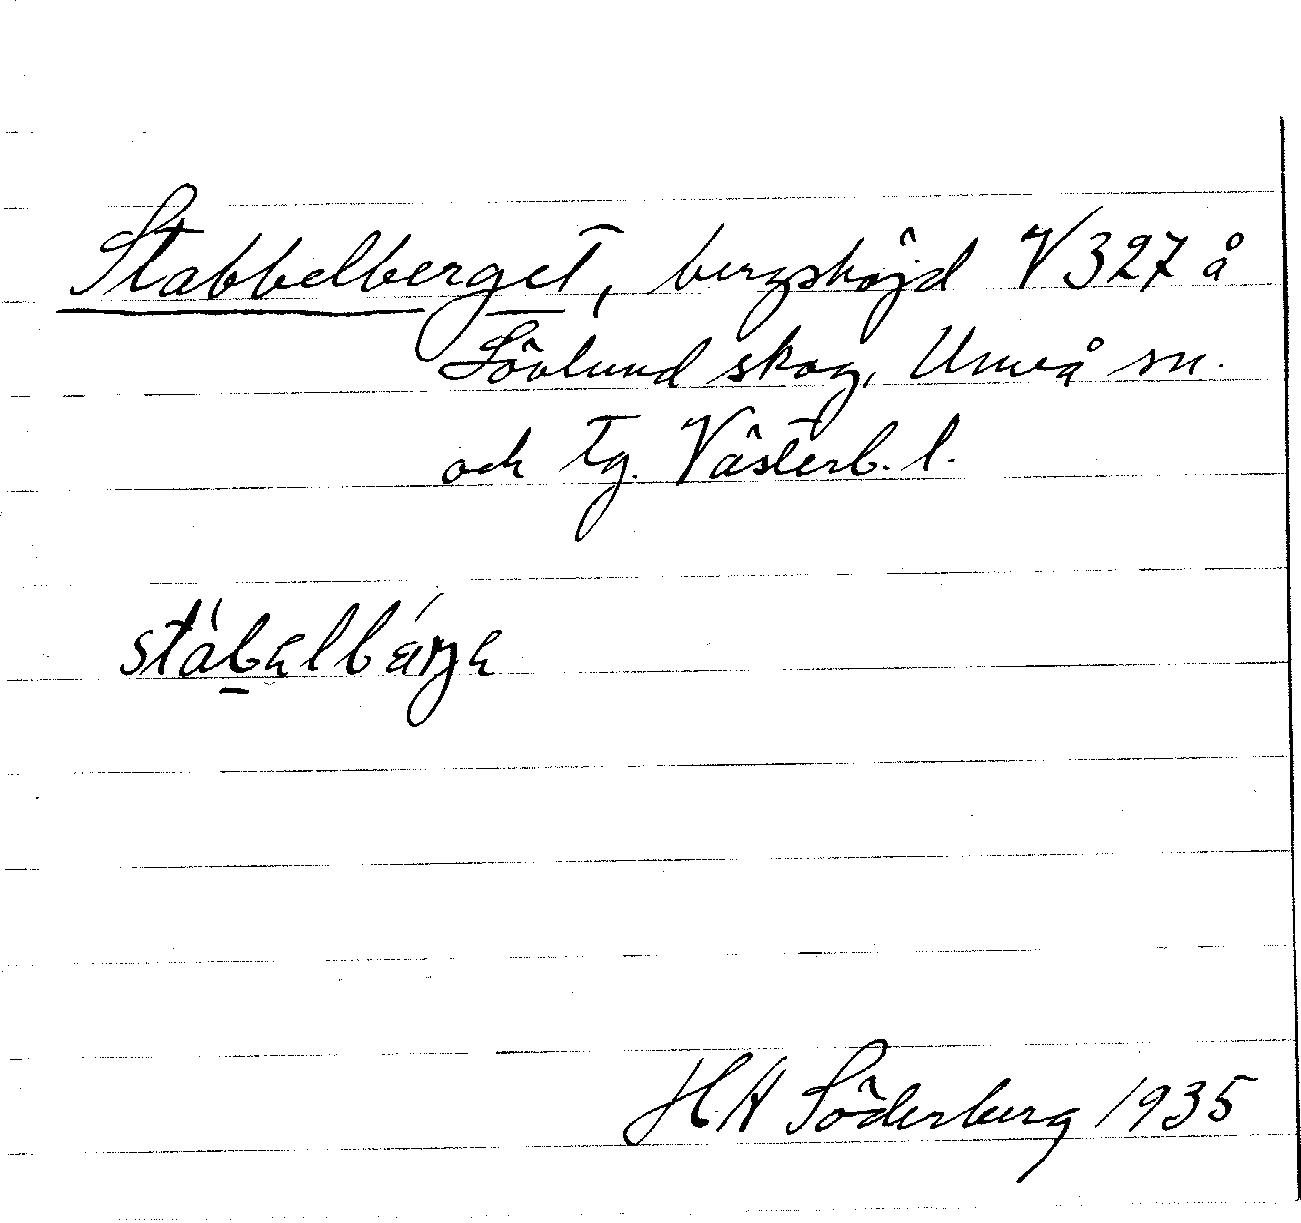 Stabbelberget, bergshöjd V 327 å
Sövlund skog, Umeå sn.
och tg. Västerb. l.
stàb̲əlbárgə
HH Söderberg 1935